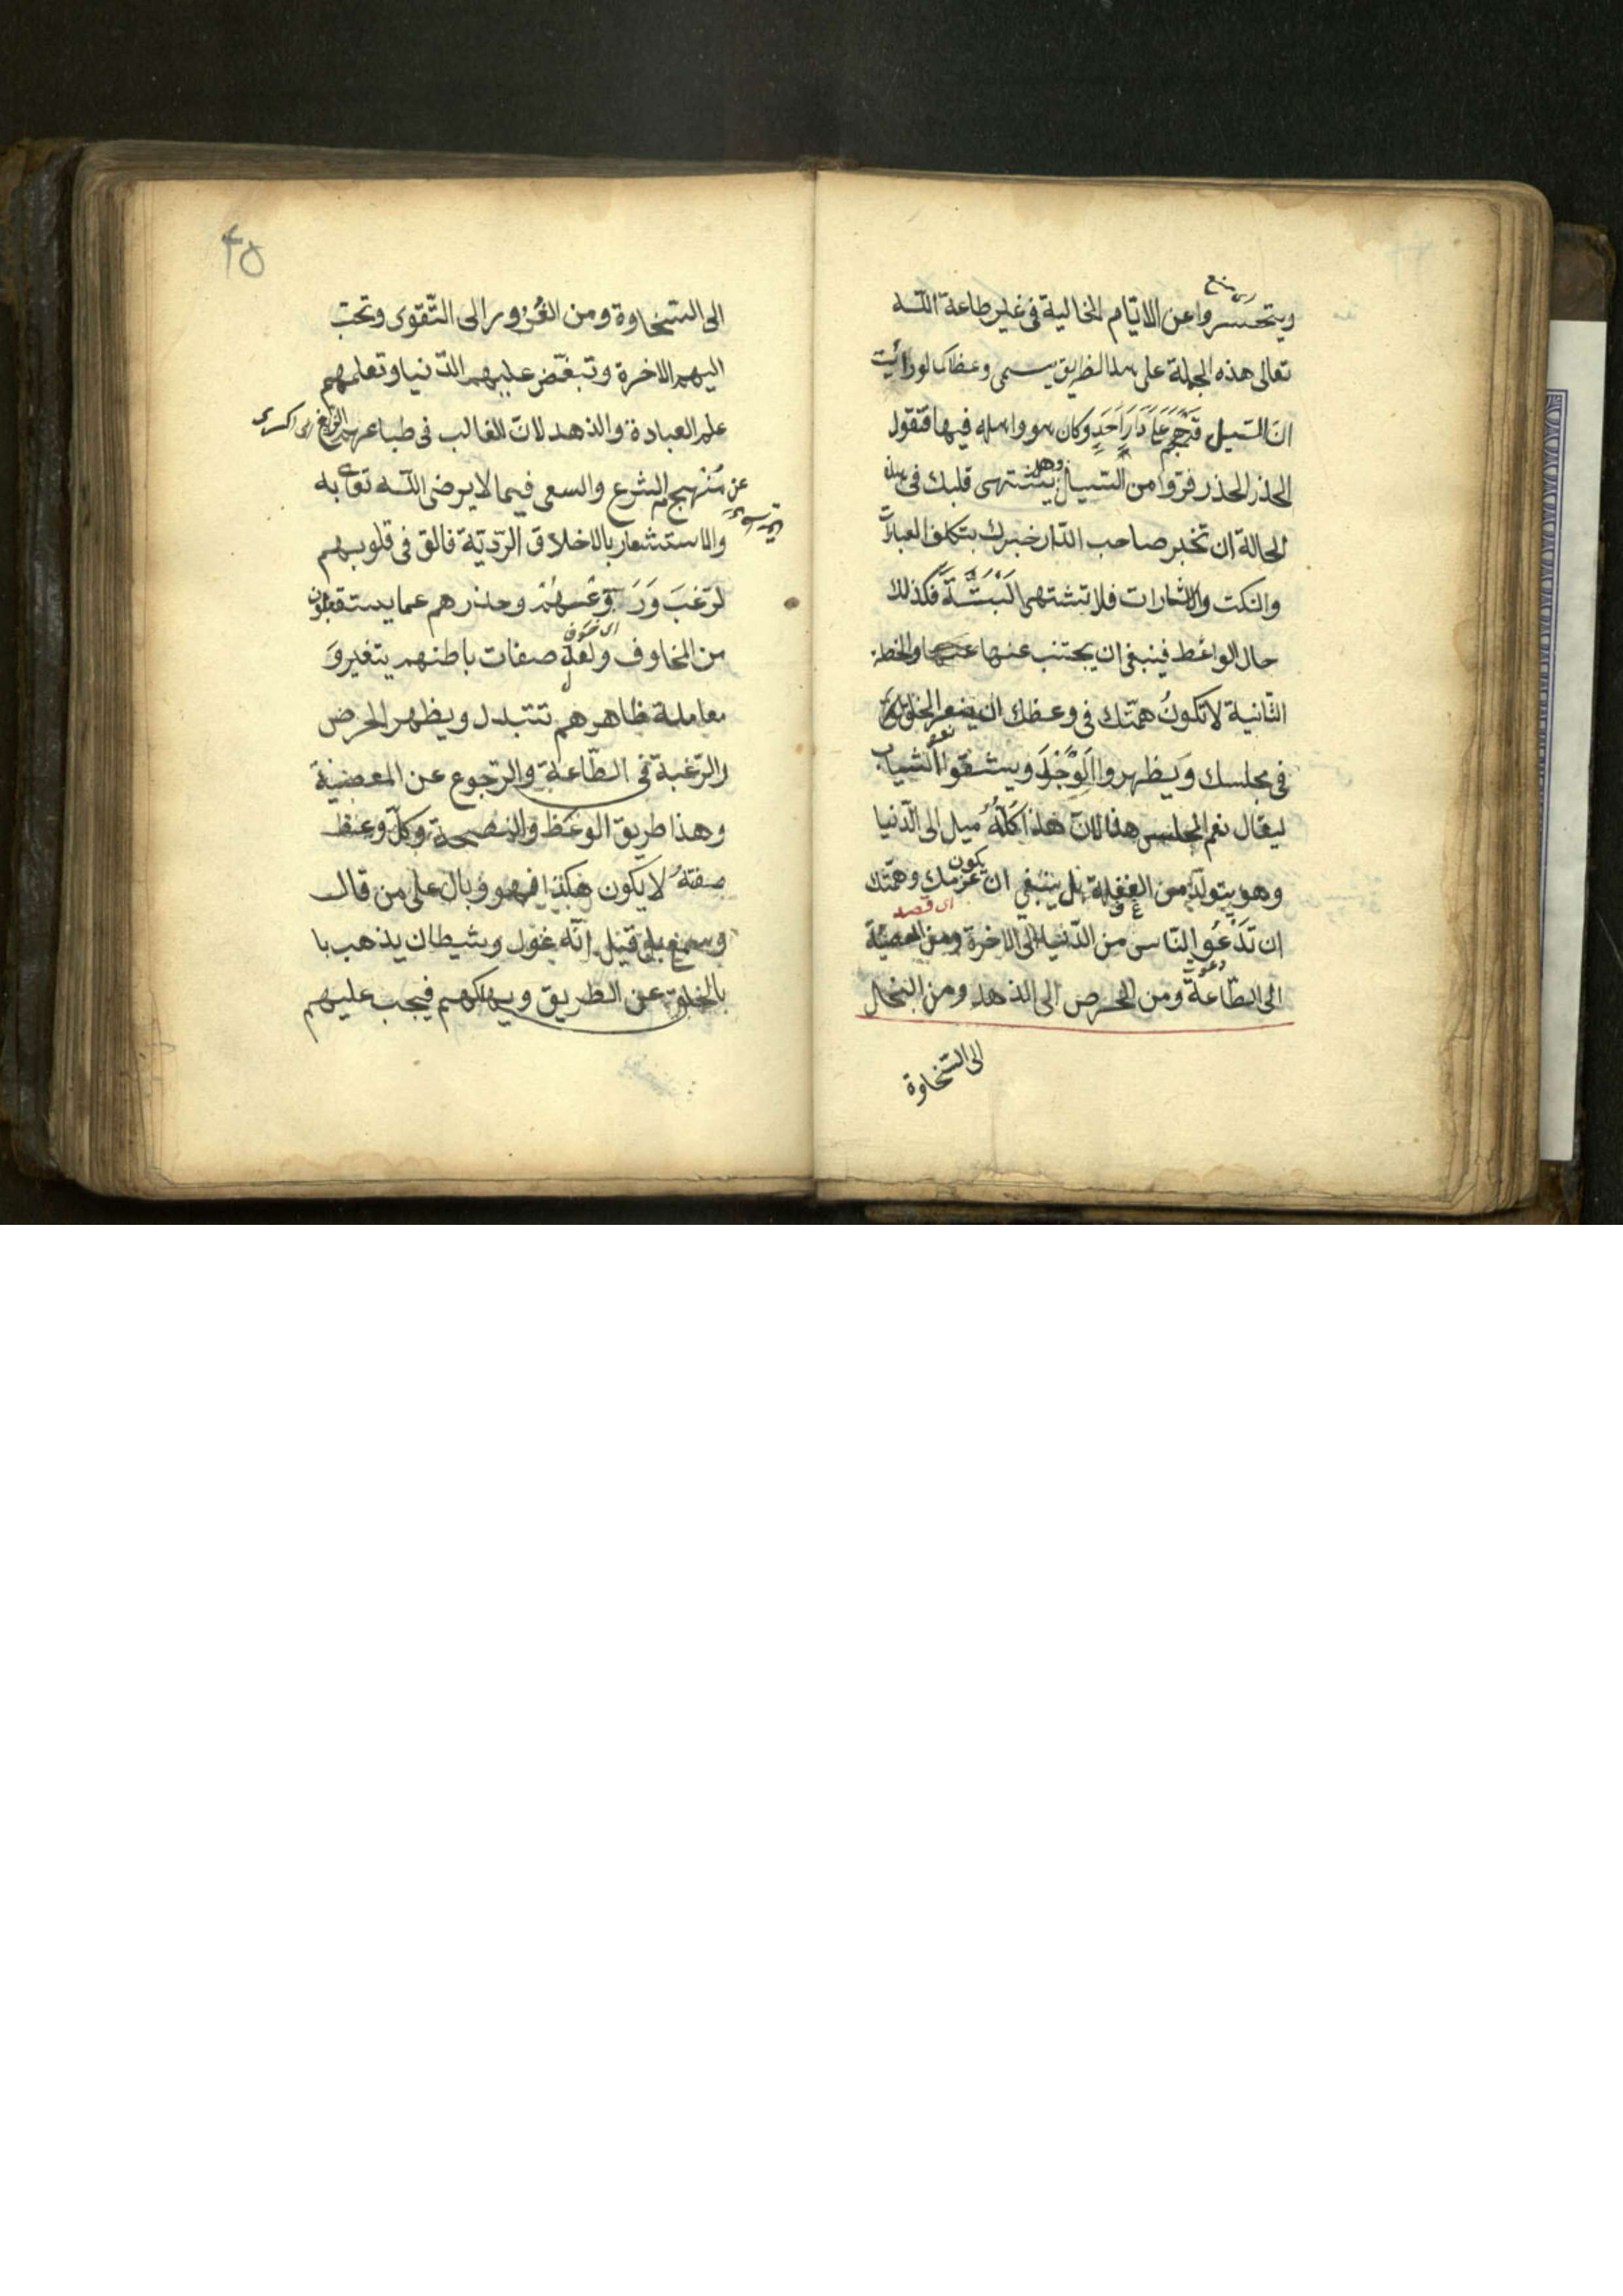 ويتحسروا عن الايّام الخالية في غير طاعة اللّه
تعالى هذه الجملة على هذا الطريق يسمى وعظا كما لو رأيت
انّ السّيل قد هجم على دار احد وكان هو واهله فيها فتقول
الحذر الحذر فرّوا من السّيل وهل يشتهى قلبك في هذه
الحالة ان تخبر صاحب الدّار خبرك بتكلف العبارات
والنكت والاشارات فلا تشتهى البتّة فكذلك
حال الواعظ فينبغي ان يجتنب عنها والخطة
الثّانية لا تكون همّتك في وعظك ان الخلق
في مجلسك ويظهروا الوجد ويشقوا الثياب
ليقال نعم المجلس هذا لانّ هذا كلّه ميل الى الدّنيا
وهو يتولّد من الغفلة بل ينبغي ان يكون عزمك وهمّتك
اى قصد
ان تدعو النّاس من الدّنيا الى الاخرة ومن المعصيّة
الى الطّاعة ومن الحرص الى الذهد ومن البخل
الى السّخاوة
۴۵
الى السّخاوة ومن الغرور الى التّقوى وتحبّ
اليهم الاخرة وتبغّض عليهم الدّنيا وتعلمهم
علم العبادة والذهد لانّ الغالب في طباعهم الزيغ
عن منهج الشرع والسعى فيما لا يرضى اللّه تعا به
والاستشعار بالاخلاق الرّديّة فالق في قلوبهم
لرّعب وروّعهم وحذرهم عما يستقبلون
من المخاوف ولعل صفات باطنهم يتغير و
معاملة ظاهرهم تتبدل ويظهر الحرص
والرّغبة في الطّاعة والرّجوع عن المعصية
وهذا طريق الوعظ والنصيحة وكلّ وعظ
صفته لا يكون هكذا فهو وبال على من قال
وسمع بل قيل انّه غول وشيطان يذهب با
بالخلق عن الطريق ويهلكهم فيجب عليهم